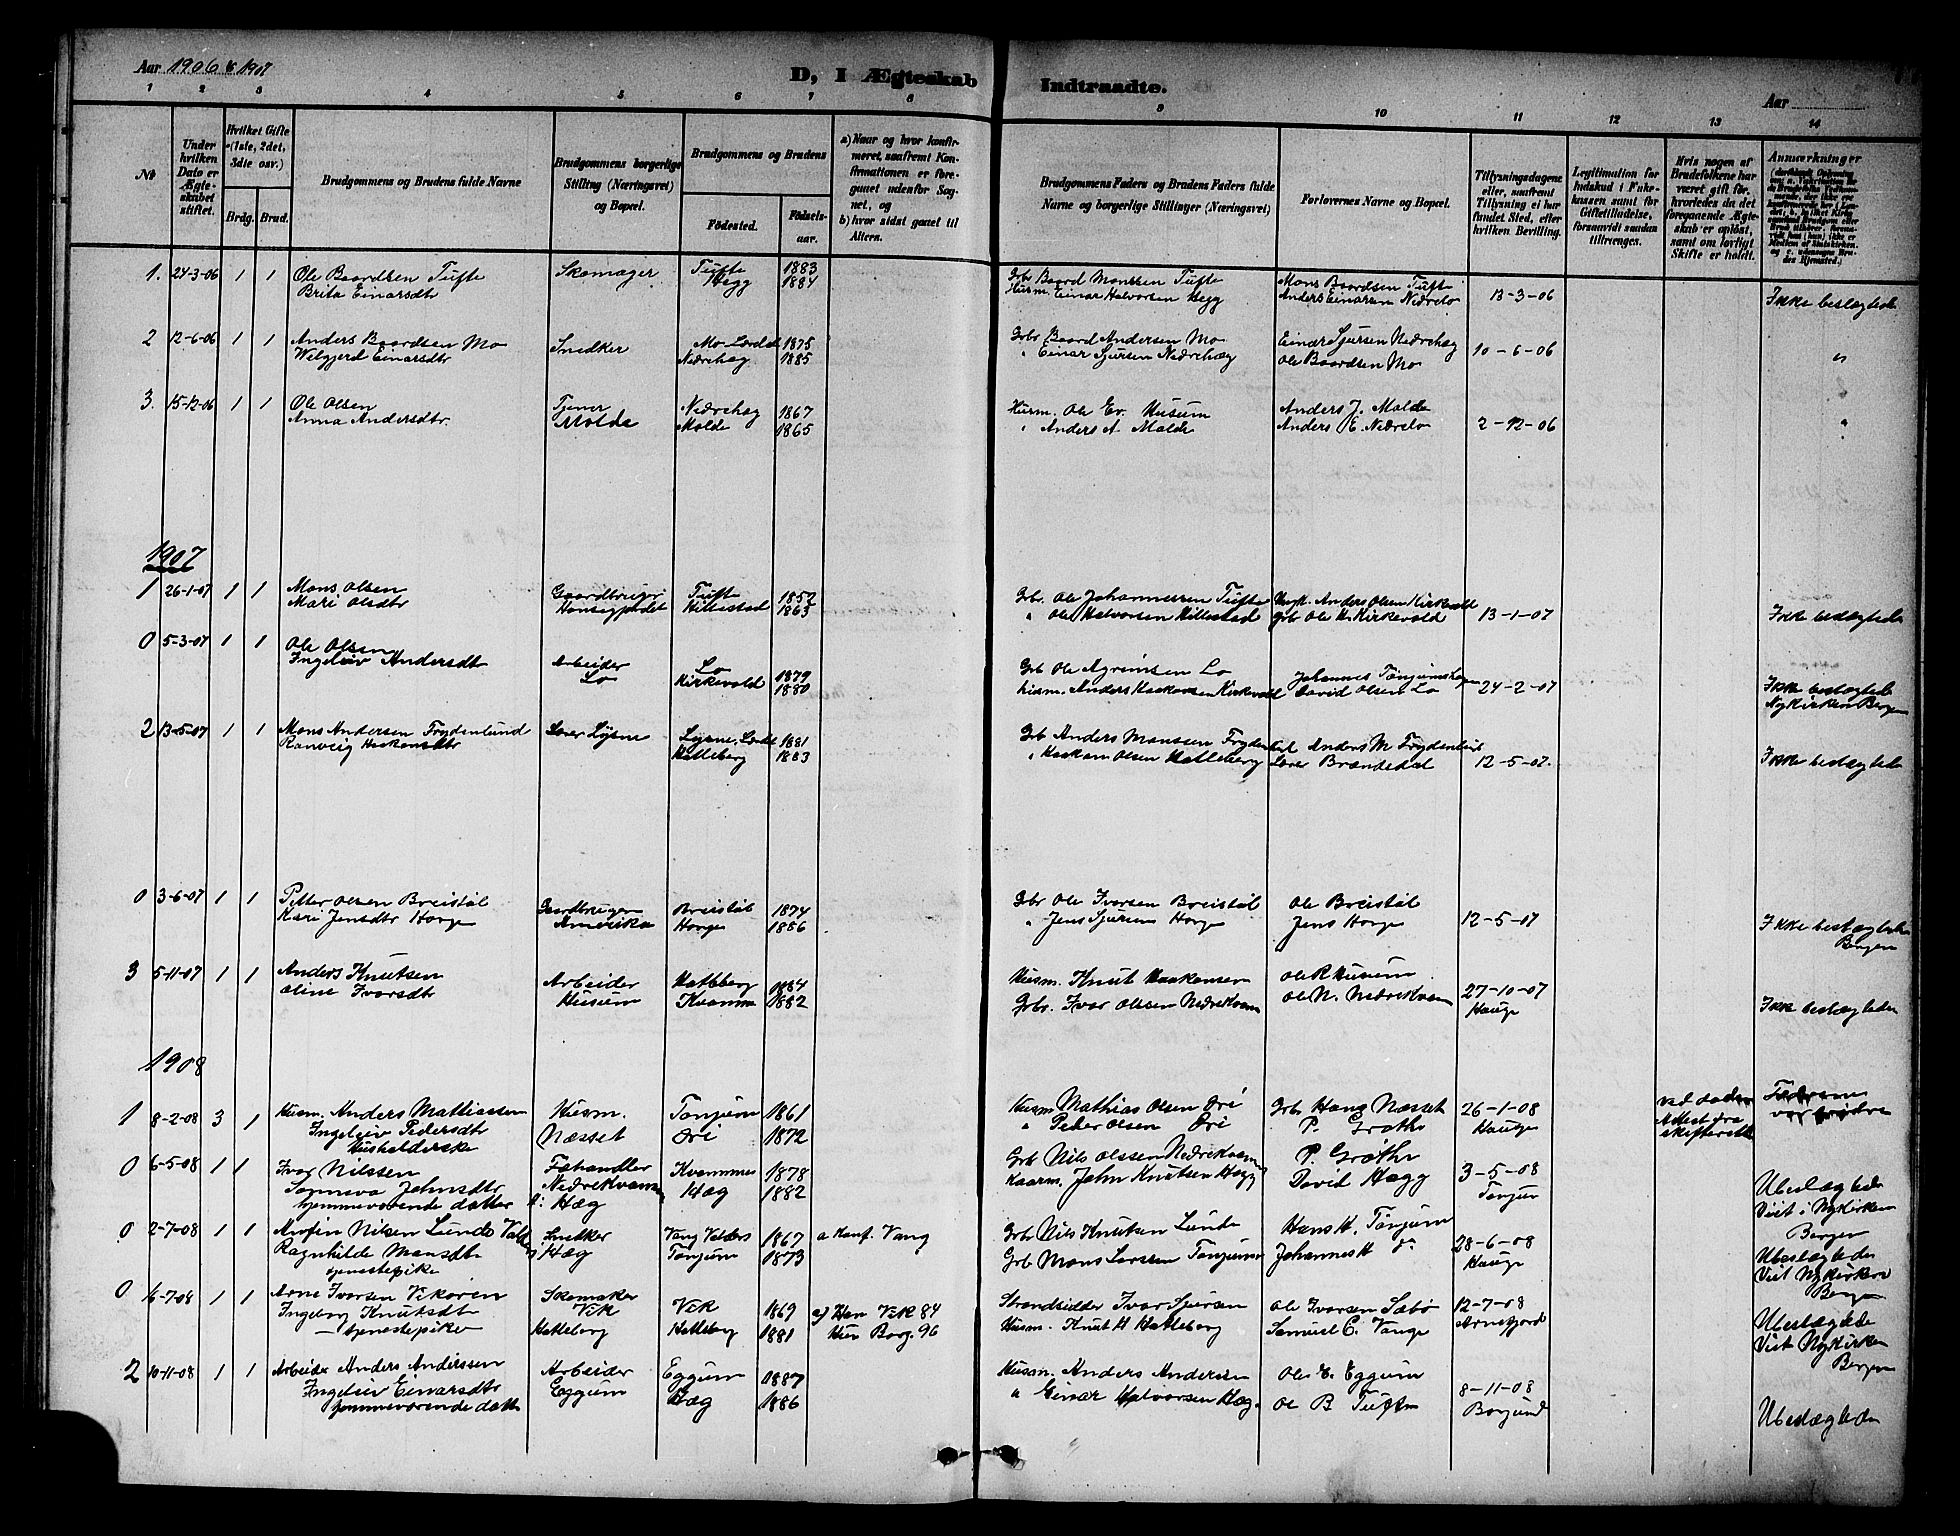 Aar 1906 & 1907
D, I Ægteskab Indtraadte.
Aar
1 2 3 4 5 6 7 8 9 10 11 12 13 14
No
Under hvilken Dato er Ægteskabet stiftet.
Hvilket Gifte (1ste, 2det, 3die osv.)
Brdg. Brud.
Brudgommens og Brudens fulde Navne
Brudgommens borgerlige Stilling (Næringsvei) og Bopæl.
Brudgommens og Brudens
Födested.
Födselsaar.
a) Naar og hvor konfirmeret, saafremt Konfirmationen er foregaaet udenfor Sognet, og
b) hvor sidst gaaet til Alters.
Brudgommens Faders og Brudens Faders fulde Navne og borgerlige Stillinger (Næringsvei)
Forlovernes Navne og Bopæl.
Tillysningsdagene eller, saafremt Tillysning ei har fundet Sted, efter hvilken Bevilling.
Legitimation for Indskud i Enkekassen samt for Giftetilladelse, forsaavidt saadan tiltrænges.
Hvis nogen af Brudefolkene har været gift før, hvorledes da det foregaaende Ægteskab er oplöst, samt om lovligt Skifte er holdt.
Anmærkninger
1. 24-3-06 1 1 Ole Baardsen Tufte Skomager Tufte 1883 Grbr Baard Monssen Tufte Mons Baardsen Tufte 13-3-06 Ikke beslægtede
Brita Einarsdtr Hegg 1884 Husm. Einar Halvorsen Hegg Anders Einarsen Nedrelo
2 12-6-06 1 1 Anders Baardsen Mo Snedker Mo Lærdal 1875 Grbr Baard Andersen Mo Einar Sjursen Nedrehæg 10-6-06 "
Wilgjerd Einarsdtr Nedrehæg 1885 " Einar Sjursen Nedrehæg Ole Baardsen Mo
3. 15-12-06 1 1 Ole Olsen Tjener Nedrehæg 1867 Husm. Ole Ev. Husum Anders J. Molde 2-12-06 "
Anna Andersdtr. Molde Molde 1865 " Anders A. Molde Anders E. Nedrelo
1907
1 26-1-07 1 1 Mons Olsen Gaardbruger Tufte 1852 Grbr. Ole Johannessen Tufte Anders Olsen Kirkevold 13-1-07 Ikke beslægtede
Mari Olsdtr Hensegjærdet Hillestad 1863 " Ole Halvorsen Hillestad Grbr Ole H. Kirkevold
0 5-3-07 1 1 Ole Olsen Arbeider Lo 1879 Grb Ole Agrimsen Lo Johannes Tønjumshagen 24-2-07 Ikke beslægtede
Ingeleiv Andersdtr Lo Kirkevold 1880 Husm. Anders Haakonsen Kirkevold David Olsen Lo Nykirken Bergen
2 13-5-07 1 1 Mons Andersen Frydenlund Lærer Ljøsne Ljøsne, Lærdal 1881 Grb Anders Monssen Frydenlund Anders M Frydenlund 12-5-07. Ikke beslægtede
Ranveig Haakonsdtr Hatleberg 1883 " Haakon Olsen Hatleberg Lærer Brændsdal
0 3-6-07 1 1 Petter Olsen Breistøl Gaardbruger Breistøl 1874 Gbr Ole Ivorsen Breistøl Ole Breistøl 12-5-07 Ikke beslægtede
Kari Jensdtr Horge Amerika Horge 1886 " Jens Sjursen Horge Jens Horge Bergen
3 5-11-07 1 1 Anders Knutsen Arbeider Hatleberg 1884 Husm. Knut Haakonsen Ole R Husum 27-10-07 Ikke beslægtede
Oline Ivorsdtr Husum Kvamme 1882 Grbr. Ivor Olssen Nedrekvam Ole N. Nedrekvam Hauge
1908
1 8-2-08 3 1 Husm. Anders Mattiassen Husm. Tønjum 1861 Husm Mathias Olsen Øri Grbr Hans Næsset 26-1-08 ved døden Fædrene
Ingeleiv Pedersdtr Næsset Øri 1872 " Peter Olsen Øri P. Grøthe Hauge Attest fra var brødre
Husholderske skifteretten
0 6-5-08 1 1 Ivar Nilssen Fæhandler Kvamme 1878 Grb Nils Olssen Nedrekvamme P. Grøthe 3-5-08 Ubeslægtede
Sognsva Johnsdtr Nedrekvamme Hæg 1882 Kaarm. John Knutsen Hægg David Hægg Tønjum Viet i Nykirken
hjemmeværende datter B: Hæg Bergen
0 2-7-08 1 1 Arnfin Nilsen Lunde Valdres Snekker Vang Valders 1867 a Konf. Vang Grb. Nils Knutsen Lunde Hans H. Tønjum 28-6-08 Ubeslægtede
Ragnhilde Monsdtr Hæg Tønjum 1873 Grb Mons Larssen Tønjum Johannes H do Hauge Viet Nykirken
tjenestepike Bergen
0 6-7-08 1 1 Arne Ivorsen Vikøren Skomaker Vik 1869 a) Han Vik 84 Strandsidder Ivor Sjursen Ole Ivorsen Sæbø 12-7-08 Ubeslægtede
Ingeborg Knutsdtr Vik Hatleberg 1881 Hun Borg. 96 Husm. Knut H Hatleberg Samuel E. Vange Arnefjord Viet Nykirken
tjenestepike Hatleberg Bergen
2 10-11-08 1 1 Arbeider Anders Anderssen Arbeider Eggum 1887 Husm. Anders Andersen Ole E. Eggum 8-11-08 Ubeslægtede
Ingeleiv Einarsdtr Eggum Hæg 1886 " Einar Halvorsen Hæg. Ole B Tufte Borgund
hjemmeværende datter